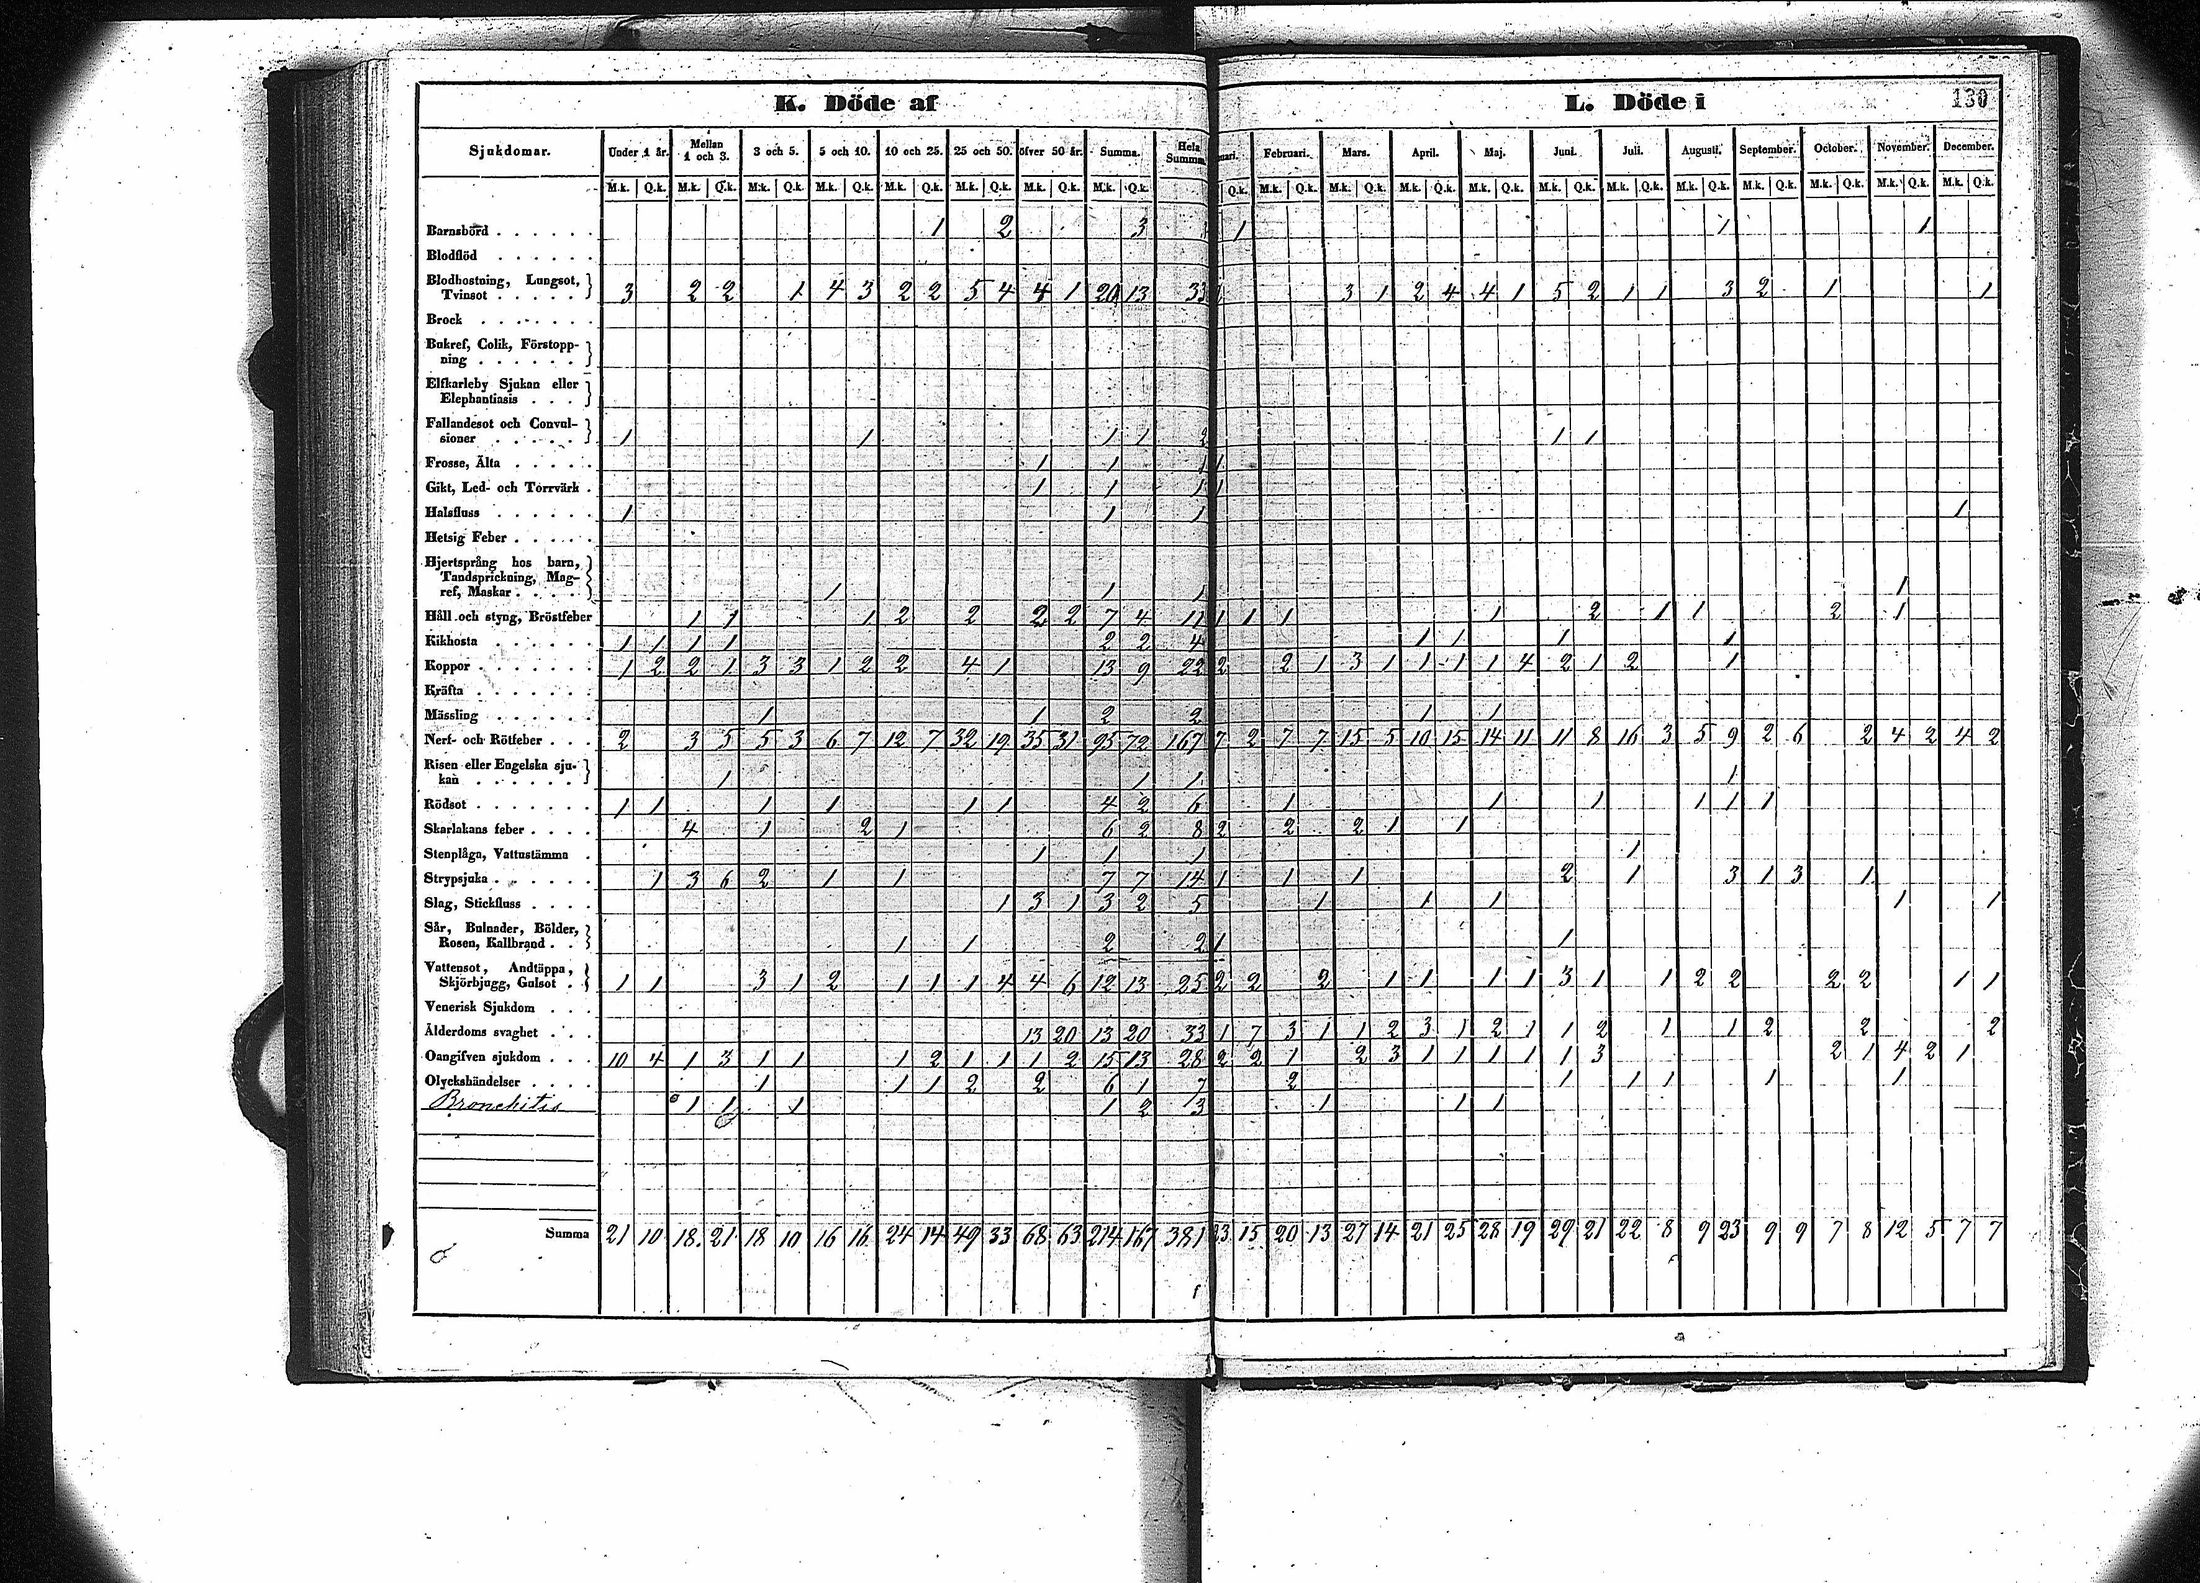 K. Döde af L. Döde i 130
Sjukdomar. Under 1 år. Mellan 1 och 3. 3 och 5. 5 och 10. 10 och 25. 25 och 50. öfver 50 år. Summa. Hela Summan Februari. Mars. April. Maj. Juni. Juli. Augusti. September. October. November. December.
M.k. Q.k. M.k. Q.k. M.k. Q.k. M.k. Q.k. M.k. Q.k. M.k. Q.k. M.k. Q.k. M.k. Q.k. Q.k. M.k. Q.k. M.k. Q.k. M.k. Q.k. M.k. Q.k. M.k. Q.k. M.k. Q.k. M.k. Q.k. M.k. Q.k. M.k. Q.k. M.k. Q.k. M.k. Q.k.
Barnsbörd 1 2 3 1 1 1
Blodflöd
Blodhostning, Lungsot,
Tvinsot 3 2 2 1 4 3 2 2 5 4 4 1 20 13 33 3 1 2 4 4 1 5 2 1 1 3 2 1 1
Brock
Bukref, Colik, Förstopp-
ning
Elfkarleby Sjukan eller
Elephantiasis
Fallandesot och Convul-
sioner 1 1 1 1 2 1 1
Frosse, Älta 1 1 1 1
Gikt, Led- och Torrvärk 1 1 1 1
Halsfluss 1 1 1 1
Hetsig Feber
Hjertsprång hos barn,
Tandsprickning, Mag-
ref, Maskar 1 1 1 1
Håll och styng, Bröstfeber 1 1 1 2 2 2 2 7 4 11 1 1 1 1 2 1 1 2 1
Kikhosta 1 1 1 1 2 2 4 1 1 1 1
Koppor 1 2 2 1 3 3 1 2 2 4 1 13 9 22 2 2 1 3 1 1 1 1 4 2 1 2 1
Kräfta
Mässling 1 1 2 2 1 1
Nerf- och Rötfeber 2 3 5 5 3 6 7 12 7 32 19 35 31 95 72 167 7 2 7 7 15 5 10 15 14 11 11 8 16 3 5 9 2 6 2 4 2 4 2
Risen eller Engelska sju-
kan 1 1 1 1
Rödsot 1 1 1 1 1 1 4 2 6 1 1 1 1 1 1
Skarlakans feber 4 1 2 1 6 2 8 2 2 2 1 1
Stenplåga, Vattustämma 1 1 1 1
Strypsjuka 1 3 6 2 1 1 7 7 14 1 1 1 2 1 3 1 3 1
Slag, Stickfluss 1 3 1 3 2 5 1 1 1 1 1
Sår, Bulnader, Bölder,
Rosen, Kallbrand 1 1 2 2 1 1
Vattensot, Andtäppa,
Skjörbjugg, Gulsot 1 1 3 1 2 1 1 1 4 4 6 12 13 25 2 2 2 1 1 1 1 3 1 1 2 2 2 2 1 1
Venerisk Sjukdom
Ålderdoms svaghet 13 20 13 20 33 1 7 3 1 1 2 3 1 2 1 1 2 1 1 2 2 2
Oangifven sjukdom 10 4 1 3 1 1 1 2 1 1 1 2 15 13 28 2 2 1 2 3 1 1 1 1 1 3 2 1 4 2 1
Olyckshändelser 1 1 1 2 2 6 1 7 2 1 1 1 1 1
Bronchitis 1 1 1 1 2 3 1 1 1
Summa 21 10 18 21 18 10 16 16 24 14 49 33 68 63 214 167 381 23 15 20 13 27 14 21 25 28 19 29 21 22 8 9 23 9 9 7 8 12 5 7 7